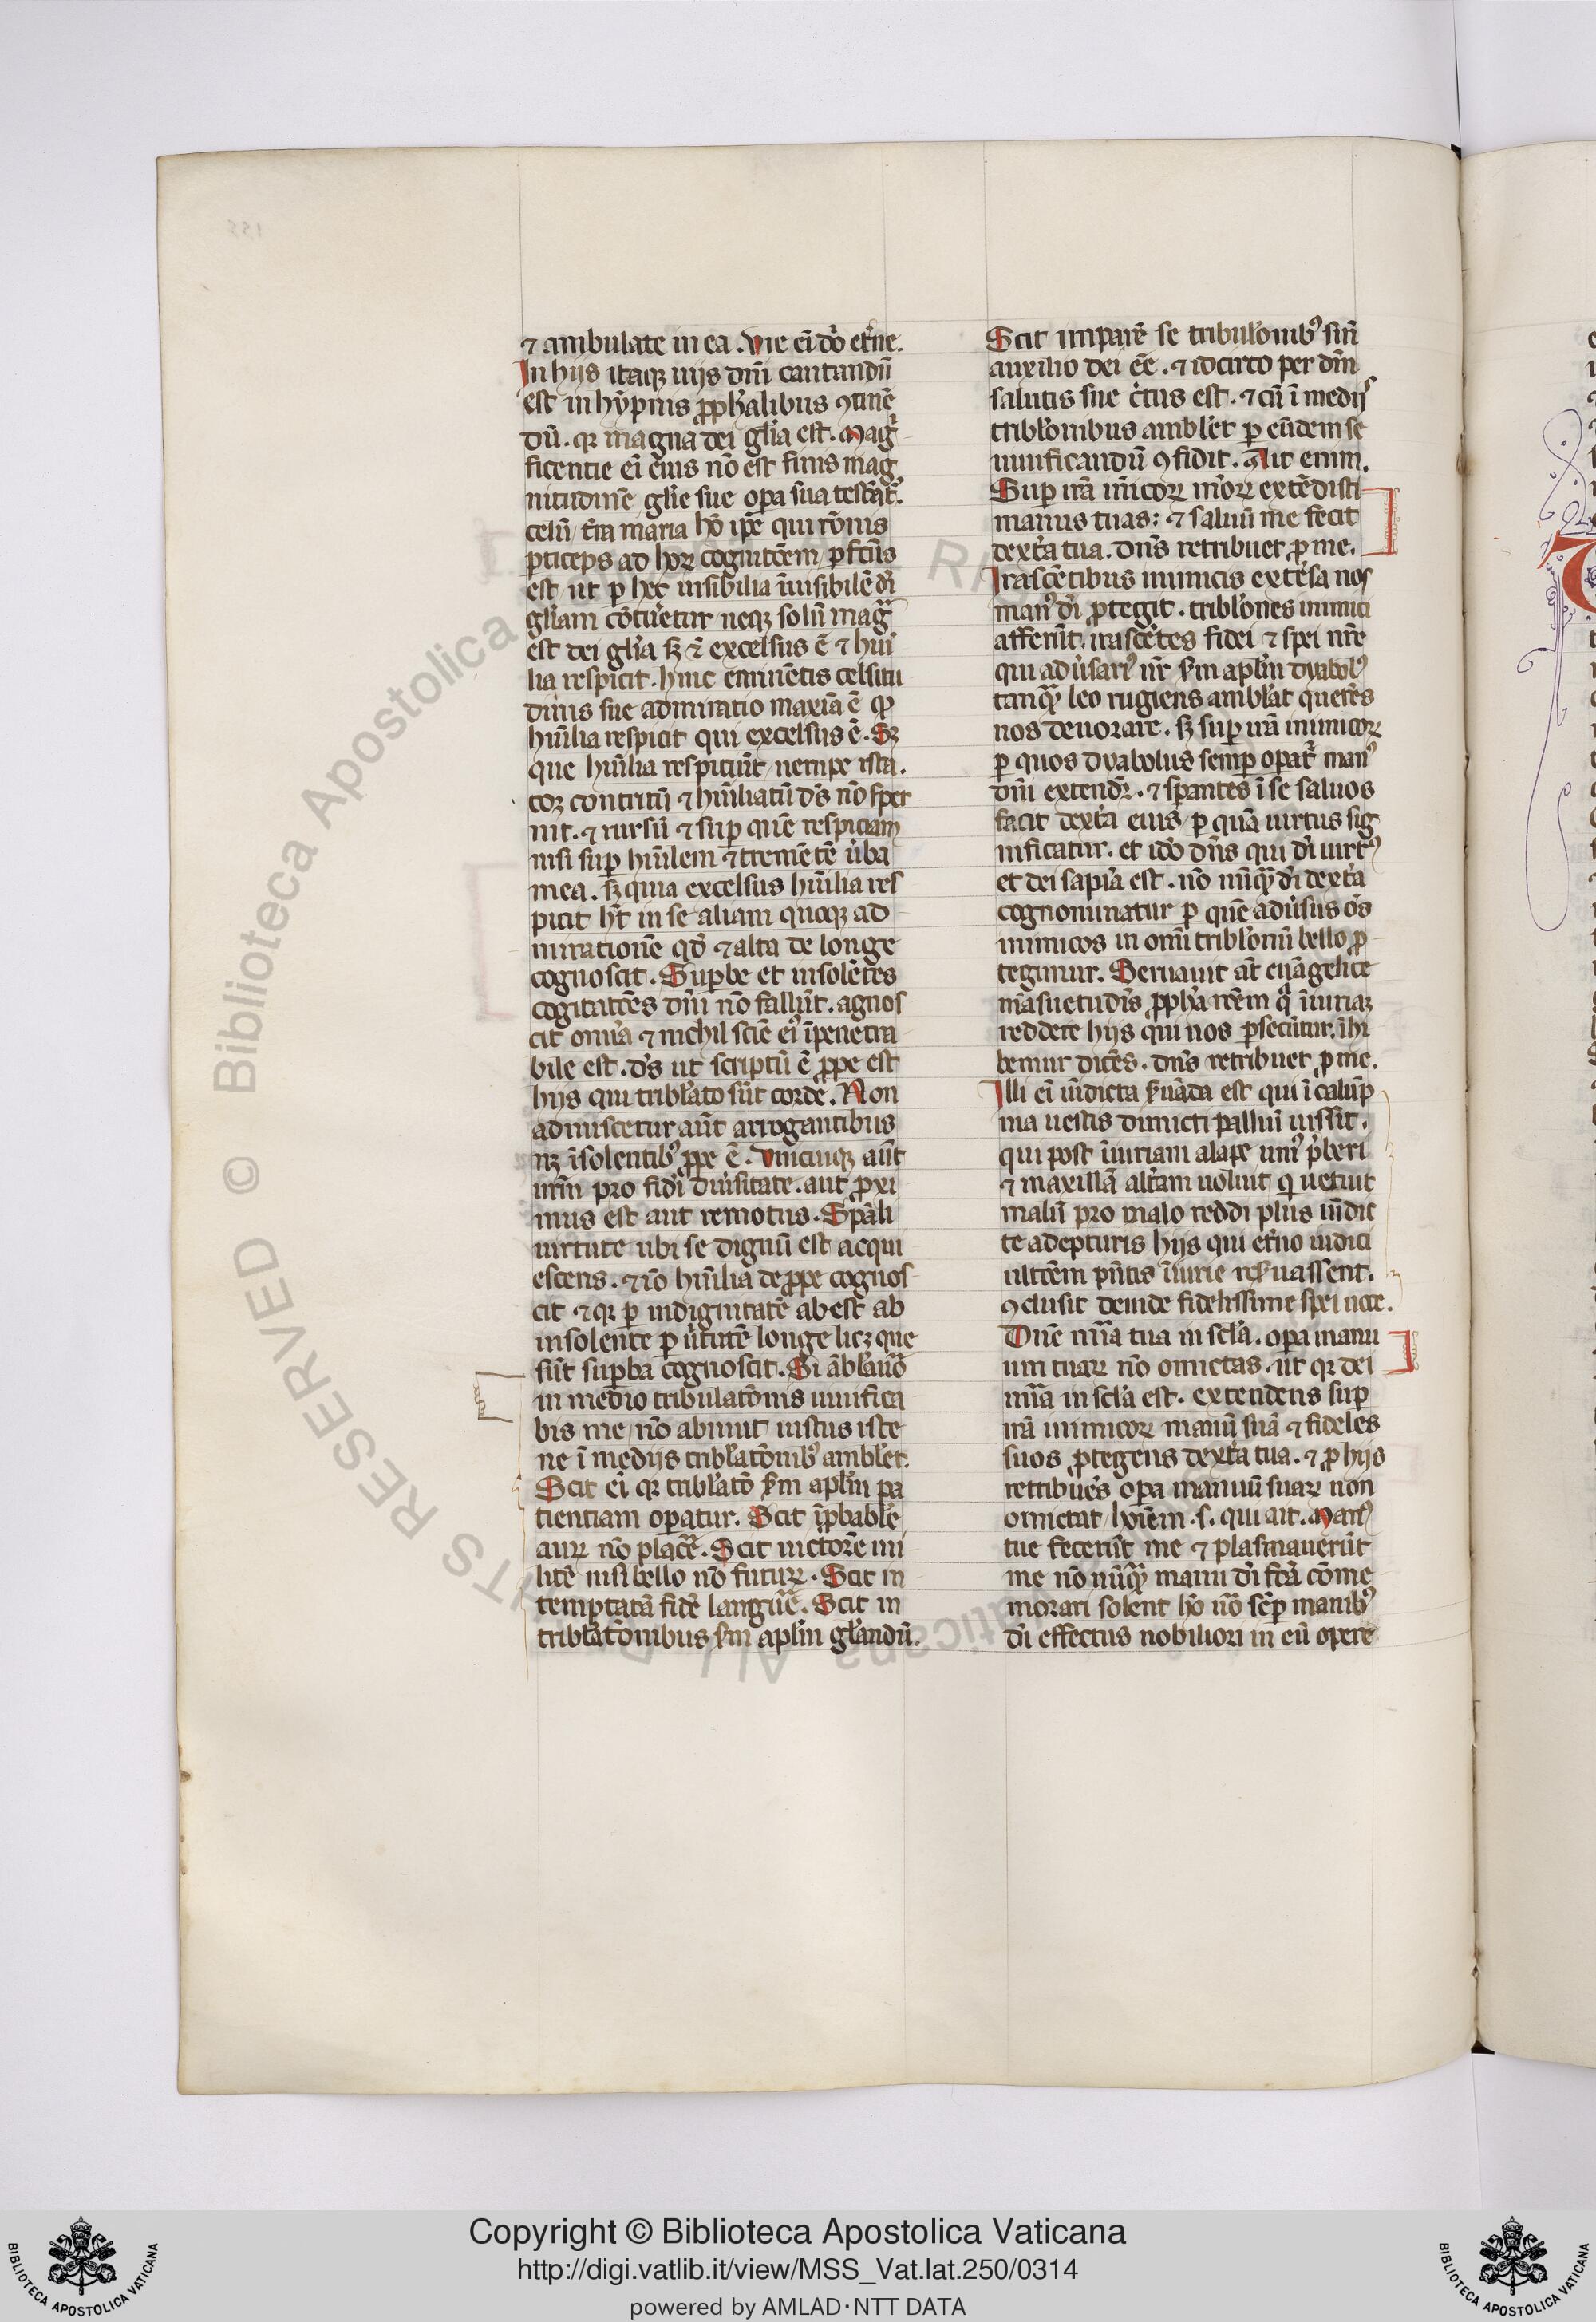 ⁊ ambulate in ea. Vie eı̄ dō et̄ne.
In hijs itaqꝫ uijs dn̄i cantandū
est in hẏpnis ꝓph̄alibus ꝯtinē
dū. qꝛ magna dei gl̄ia est. Magͥ
ficentie eı̄ eius nō est finis mag
nitudinē gl̄ie sue oꝑa sua testāt᷑.
celū t̄ra maria hō ip̄e qui rōnis
ꝑticeps ad hoꝝ cognitōem ꝑfc̄us
est ut ꝑ hec uisibilia īuisibilē di̅
gl̄iam cōtuēetur neqꝫ solū magͣ
est dei gl̄ia sꝫ ⁊̄ excelsus ē ⁊ hui̅
lia respicit. hinc eminētis celsitu
dinis sue admiratio maxiā ē qꝙ
hūilia respicit qui excelsus ē. Sꝫ
que hūilia respiciūt nempe ista.
coꝛ contritū ⁊ hūiliatū ds̄ nō sper
nit. ⁊ rursū ⁊ suꝑ quē respiciam
nisi suꝑ hūilem ⁊ tremētē u̅ba
mea. sꝫ quia excelsus hūilia res
picit ht̄ in se aliam quoqꝫ ad
mirationē qd̄ ⁊ alta de longe
cognoscit. Suꝑbe et insolētes
cogitatōes dn̄i nō fallūt. agnos
cit omīa ⁊ nichil sciē eiꝰ īpenetra
bile est. ds̄ ut scriptū ē ꝓpe est
hijs qui tribl̄ato sūt corde. Non
admiscetur aūt arrogantibus
nꝫ īsolentibꝰ ꝓpe ē. Vnicuiqꝫ aūt
ur̄m pro fidi̅ diūsitate. aut ꝓxi
mus est aut remotus. Sp̄āli
uirtute ubi se dignū est acqui
escens. ⁊ iō hūilia de ꝓpe cognos
cit ⁊ qꝛ ꝑ indignitatē abest ab
insolente ꝑ u̅tutē longe licꝫ que
sūt suꝑba cognoscit. Si ābl̄auo̅
in medio tribulatōnis uiuifica
bis me nō abnuit iustus iste
ne ī medijs tribl̄atōnibꝰ ambl̄et.
Scit eı̄ qꝛ tribl̄atō sm̄ apl̄m pa
tientiam oꝑatur. Scit īꝓbabl̄e
auꝝ nō placē. Scit uictorē mi
litē nisi bello nō futuꝝ. Scit in
temptatā fidē languē. Scit in
tribl̄atōnibus sm̄ apl̄m gl̄andū.
Scit imparē se tribul̄onibꝰ sin̄
auxilio dei eē. ⁊ idcirco per dn̄m
salutis sue c̄tus est. ⁊ cū ī medijs
tribl̄onibus ambl̄et ꝑ eūdem se
uiuificandū ꝯfidit. Ait enim.
Suꝑ irā īnicoꝝ m̄oꝝ extēdisti
manus tuas: ⁊ saluū me fecit
dext̄a tua. dn̄s retribuet ꝓ me.
Irascētibus inimicis extēsa nos
manꝰ di̅ ꝓtegit. tribl̄ones inimici
afferūt. irascētes fidei ⁊ spei nr̄e
qui adu̅sariꝰ nr̄ sm̄ apl̄m dyabolꝰ
tanqͣꝫ leo rugiens ambl̄at querēs
nos deuorare. sꝫ suꝑ irā inimicoꝝ
ꝑ quos dyabolus semꝑ oꝑat᷑ manꝰ
dn̄i extendit᷑. ⁊ sꝑantes ī se saluos
facit dext̄a eius ꝑ quā uirtus sig
nificatur. et idō dn̄s qui di̅ uirtꝰ
et dei sapīa est. nō nūqͣꝫ di̅ dext̄a
cognominatur ꝑ quē adu̅sus oēs
inimicos in omī tribl̄onū bello ꝓ
tegimur. Seruauit at̄ euāgelice
māsuetudīs ꝓph̄a rēm qͣ īiuriaꝫ
reddere hijs qui nos ꝑsecūtur. īhi
bemur dicēs. dn̄s retribuet ꝓ me.
Illi eı̄ uīdicta s̄uāda est qui ī calūp
nia uestis dimicti palliū iussit.
qui post īiuriam alape uniꝰ p̄beri
⁊ maxillā alt̄am uoluit qi uetuit
malū pro malo reddi plus uīdic
te adepturis hijs qui et̄no iudici
ultōem pn̄tis īiurie res̄uassent.
ꝯclusit deinde fidelissime spei uoce.
Dn̄e mīa tua in scl̄a. oꝑa manu
um tuaꝝ nō omictas. ut qꝛ dei
mīa in scl̄a est. extendens suꝑ
irā inimicoꝝ manū suā ⁊ fideles
suos ꝓtegens dext̄a tua. ⁊ ꝓ hijs
retribuēs oꝑa manuū suaꝝ non
omictat hoīem .s. qui ait. Manꝰ
tue fecerūt me ⁊ plasmauerūt
me nō nūqͣꝫ manu di̅ fc̄ā cōme
morari solent hō uō sēꝑ manibꝰ
di̅ effectus nobiliori in eū opere
Copyright © Biblioteca Apostolica Vaticana
http://digi.vatlib.it/view/MSS_Vat.lat.250/0314
powered by AMLAD·NTT DATA